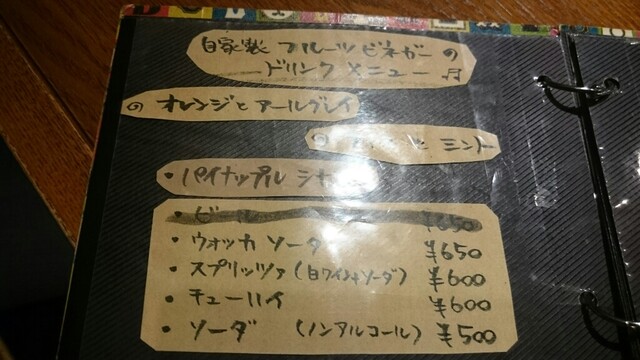 自家製 フルーツビネガーの
ドリンクメニュー♬
オレンジとアールグレイ
と ミント
・パイナップル
・ビール ¥650
・ウォッカソーダ ¥650
・スプリッツァ (白ワイン+ソーダ) ¥600
・チューハイ ¥600
・ソーダ (ノンアルコール) ¥500